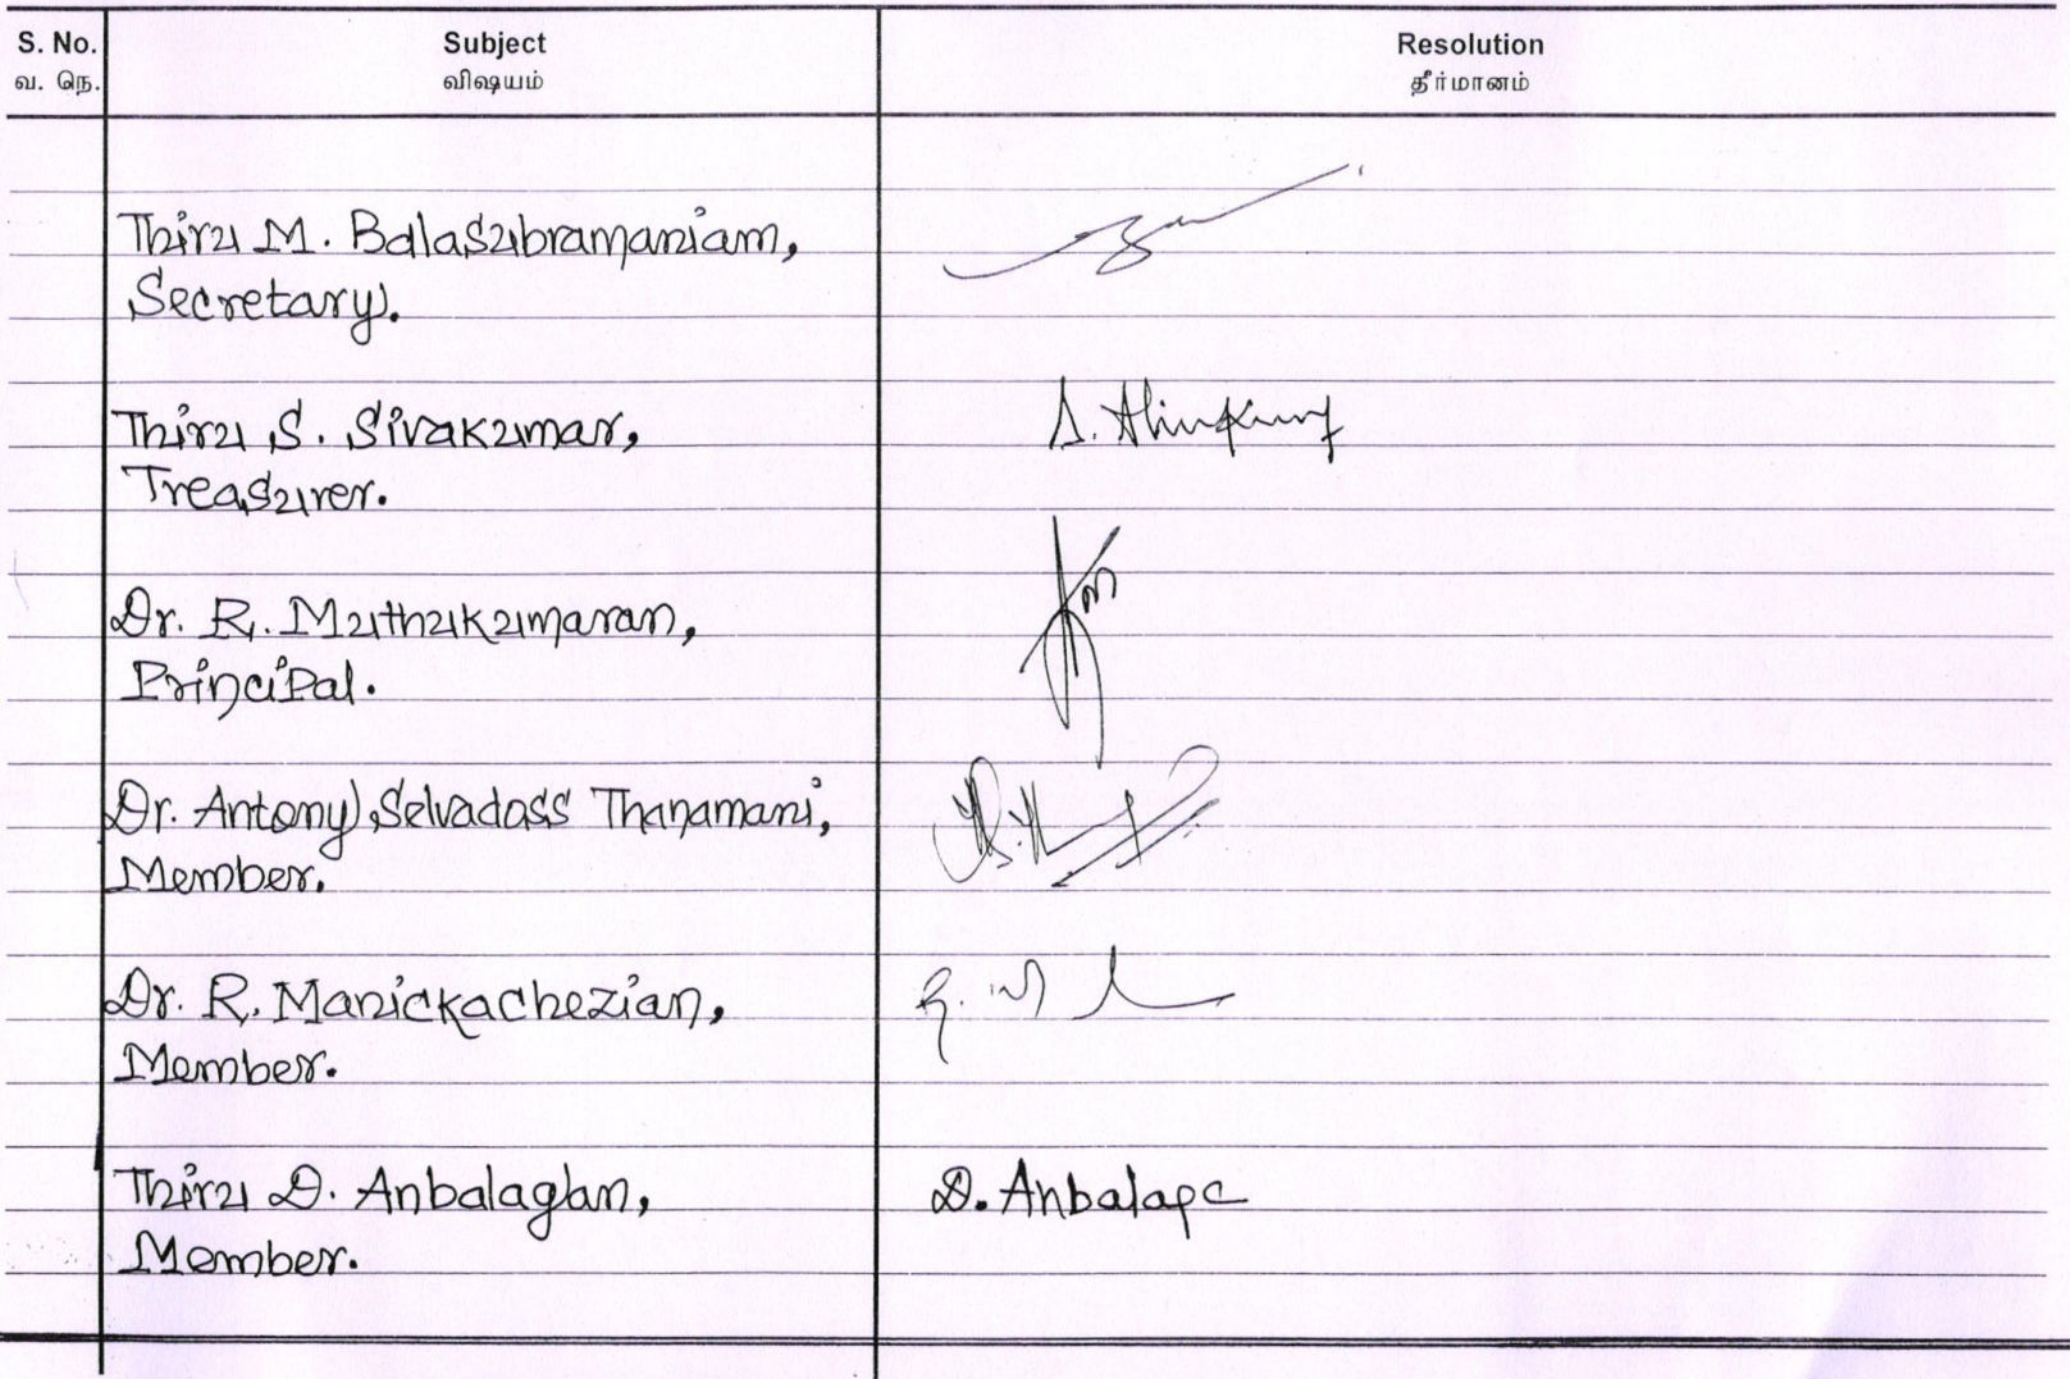 S. No. Subject Resolution
வ. நெ. விஷயம் தீர்மானம்
Thiru M. Balasubramaniam,
Secretary.
Thiru S. Sivakumar,
Treasurer.
Dr. R. Muthukumaran,
Principal.
Dr. Antony Selvadass Thanamani,
Member.
Dr. R. Manickachezian,
Member.
Thiru D. Anbalaghan, D. Anbalaga
Member.